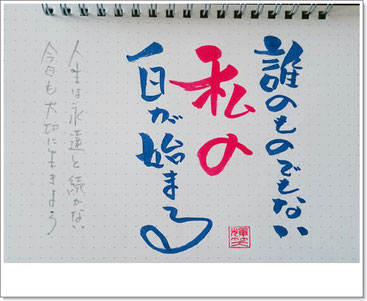 誰のものでもない
私の
一日が始まる
人生は永遠と続かない
今日も大切に生きよう